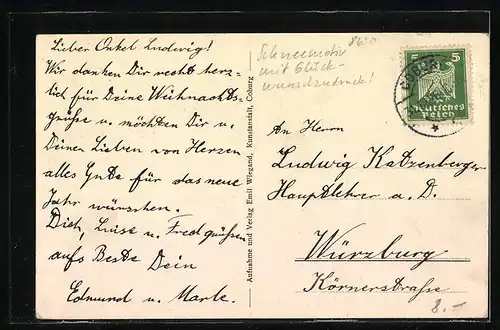 Lieber Onkel Ludwig!
Wir danken Dir recht herz-
lich für Deine Weihnachts-
grüße u. möchten Dir u.
Deinen Lieben von Herzen
alles Gute für das neue
Jahr wünschen.
Dich, Luise u. Fred grüßen
aufs Beste Dein
Edmund u. Marle.
Aufnahme und Verlag Emil Wiegand, Kunstanstalt, Coburg
Schneemotiv
mit Glück-
wunschzudruck!
5
Deutsches
Reich
COBURG
An Herrn
Ludwig Katzenberger
Hauptlehrer a. D.
Würzburg
Körnerstrasse
8.-